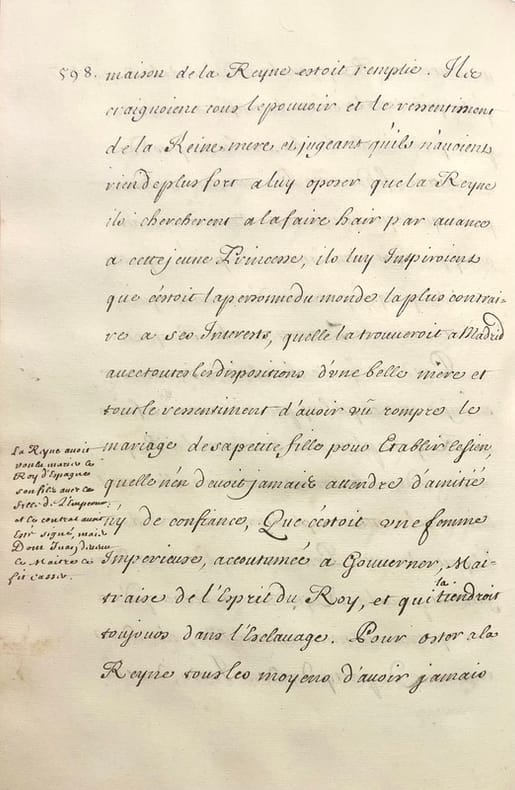 598. maison de la Reyne estoit remplie. Ils
craignoient tous le pouvoir et le ressentiment
de la Reine mere et jugeant qu'ils n'avoient
rien de plus fort a luy oposer que la Reyne
ils chercherent a la faire hair par avance
a cette jeune Princesse, ils luy Inspiroient
que c'estoit la personne du monde la plus contrai-
re a ses Interests, quelle la trouveroit a Madrid
avec toutes les dispositions d'une belle mere et
tout le ressentiment d'avoir vû rompre le
mariage de sa petite fille pour Etablir le sien,
quelle n'en devoit jamais attendre d'amitié
n'y de confiance, Que c'estoit une femme
Imperieuse, accoutumée a Gouverner, Mai-
traise de l'Esprit du Roy, et qui la tiendroit
toujours dans l'Esclavage. Pour oster a la
Reyne tous les moyens d'avoir jamais
La Reyne avoit
voulu marier le
Roy d'Espagne
son fils avec la
fille de l'Empereur
et le contrat avoit
Esté signé, mais
Dom Juan devenu
le Maitre le
fit casser.